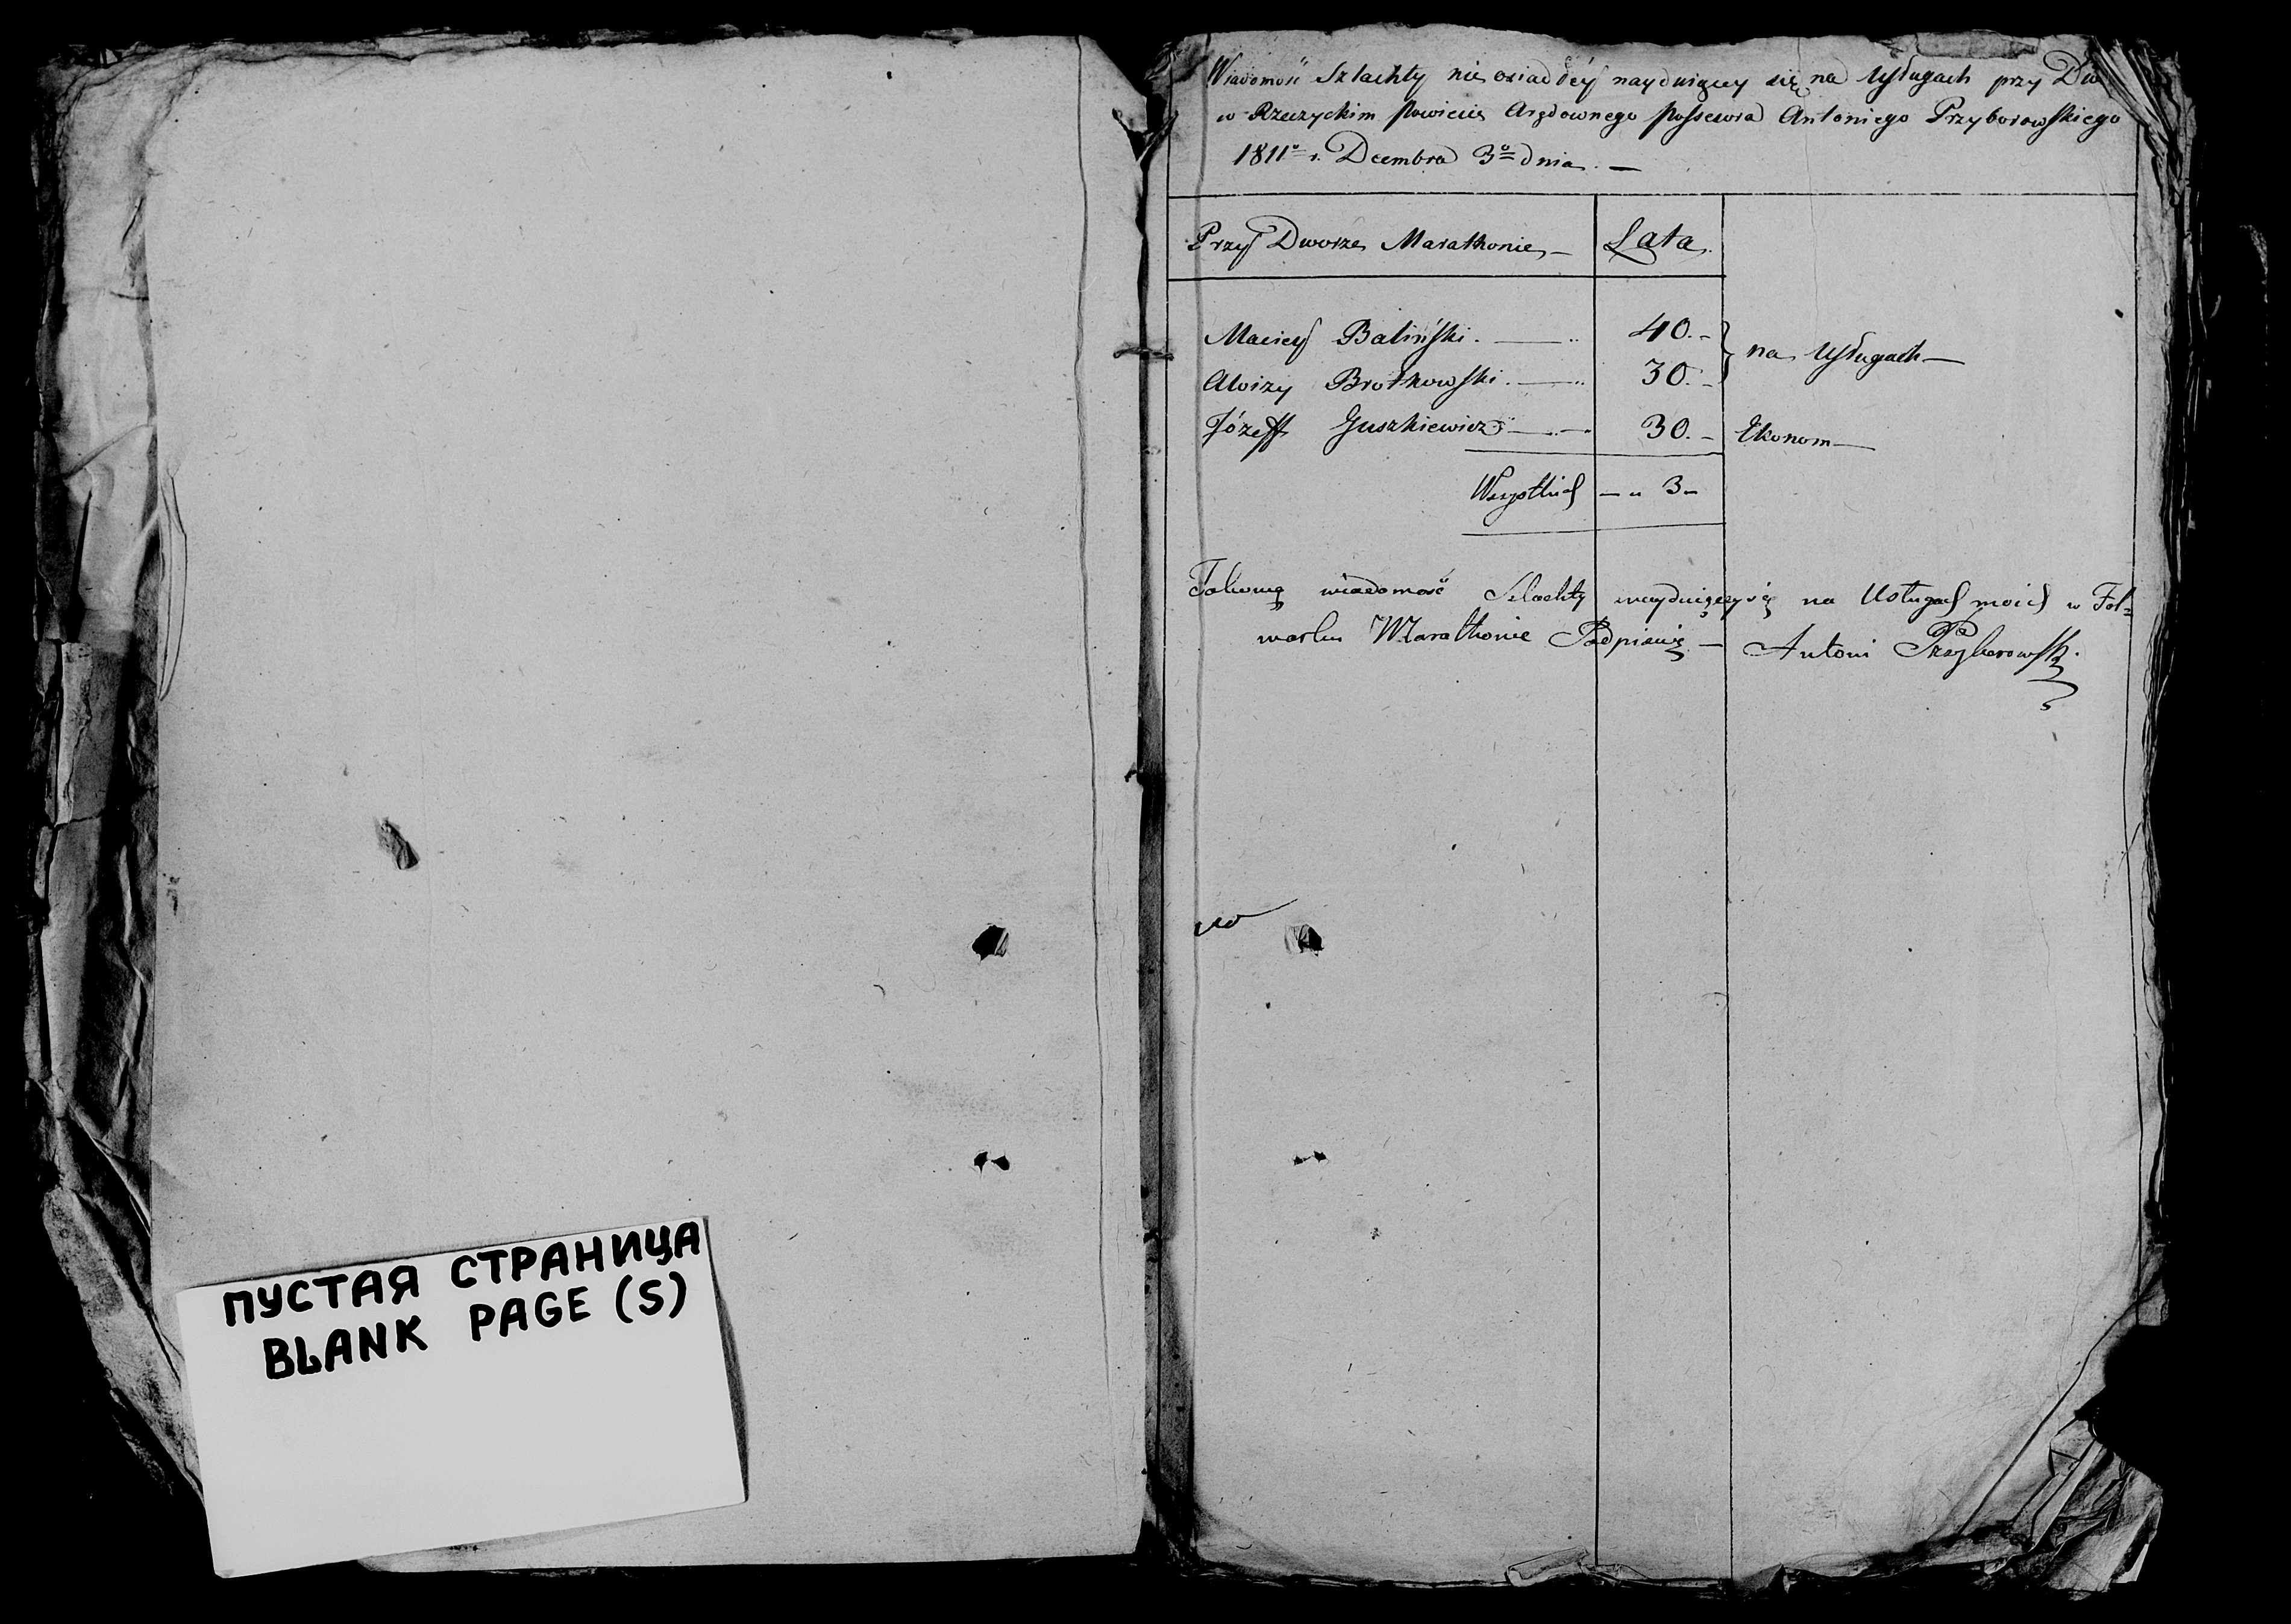 ПУСТАЯ СТРАНИЦА
BLANK PAGE (S)
Wiadomość Szlachty nie osiadłéy nayduiącey się na Usługach przy Dw
w Rzeczyckim Powiecie Arędownego Possesora Antoniego Przyborowskiego
1811º r. Dcembra 3º dnia. —
Przy Dworze Marathonie — Lata.
Maciey Baliński. — 40. — na Usługach —
Aloizy Brotkowski. — 30. —
Józeff Juszkiewicz — 30. — Ekonom —
Wszystkich — „ 3 —
Takową wiadomość Szlachty nayduiącey się na Usługach moich w Fol=
warku Marathonie Podpisuię — Antoni Przyborowski.